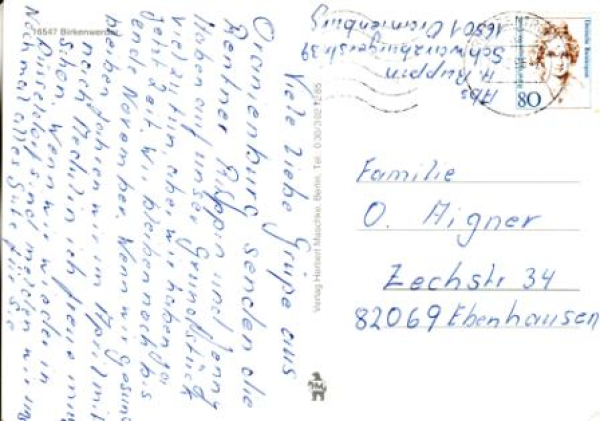 16547 Birkenwerder
Viele liebe Grüße aus
Oranienburg senden die
Rentner Ruppin und Jenny
Haben auf unser Grundstück
viel zu tun, aber wir haben ja
jetzt Zeit. Wir bleiben noch bis
Ende November. Wenn wir gesund
bleiben fahren wir im April mit
nach ich freue
schon. Wenn wir wieder in
Düsseldorf sind melden wir uns
Nochmal alles Gute für Sie
Verlag Herbert Maschke, Berlin, Tel. 0 30/3 92 12 85
HM
Abs
H. Ruppin
Schwarzburgerstr 39
16501 Oranienburg
80
Familie
O. Aigner
Zechstr 34
82069 Ebenhausen